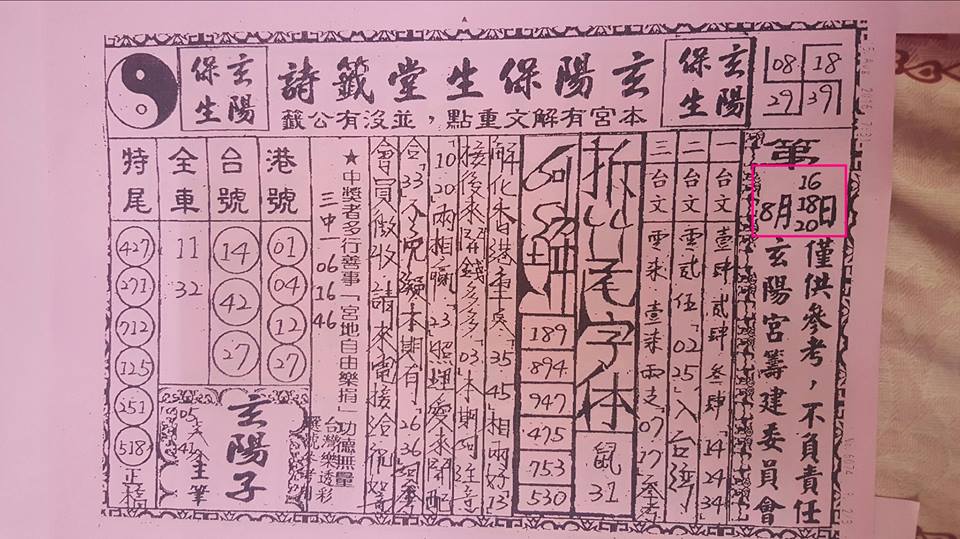 08 18
29 39
玄陽
保生
玄陽保生堂籤詩
玄陽
保生
本宮有解文重點，並沒有公籤
第
8月
16
18
20
日
僅供參考，不負責任
玄陽宮籌建委員會
一 台文 壹肆 貳肆 叁肆「14 24 34」
二 台文 雲貳伍「02 25」入台灣
三 台文 雲柒壹柒兩支「07 17」
拆 尾字体
鼠
31
189
894
947
475
753
530
解化香港重点「35 45」相兩好「13」
接後來 錢多多「03」本期 注意
「10 20」兩相 「23」照埋 來鬥配
合「33」不 礙本期有「26 36」
會員徵收 請來電接洽
★中獎者多行善事「宮地自由樂捐」功德無量
台灣樂透彩
三中一 06 16 46
港號
01
04
12
27
台號
14
42
27
全車
11
32
特尾
427
271
712
125
251
518
玄陽子
主筆
05